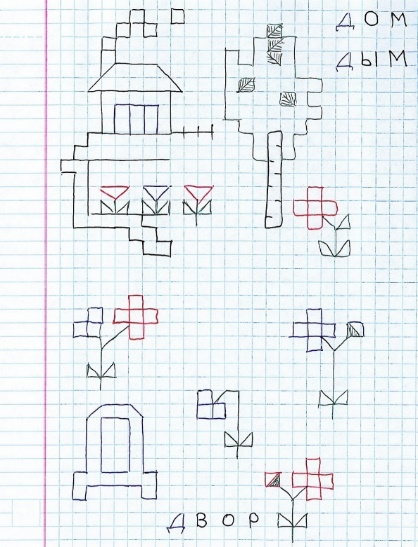 ДОМ
ДЫМ
Д
ДВОР